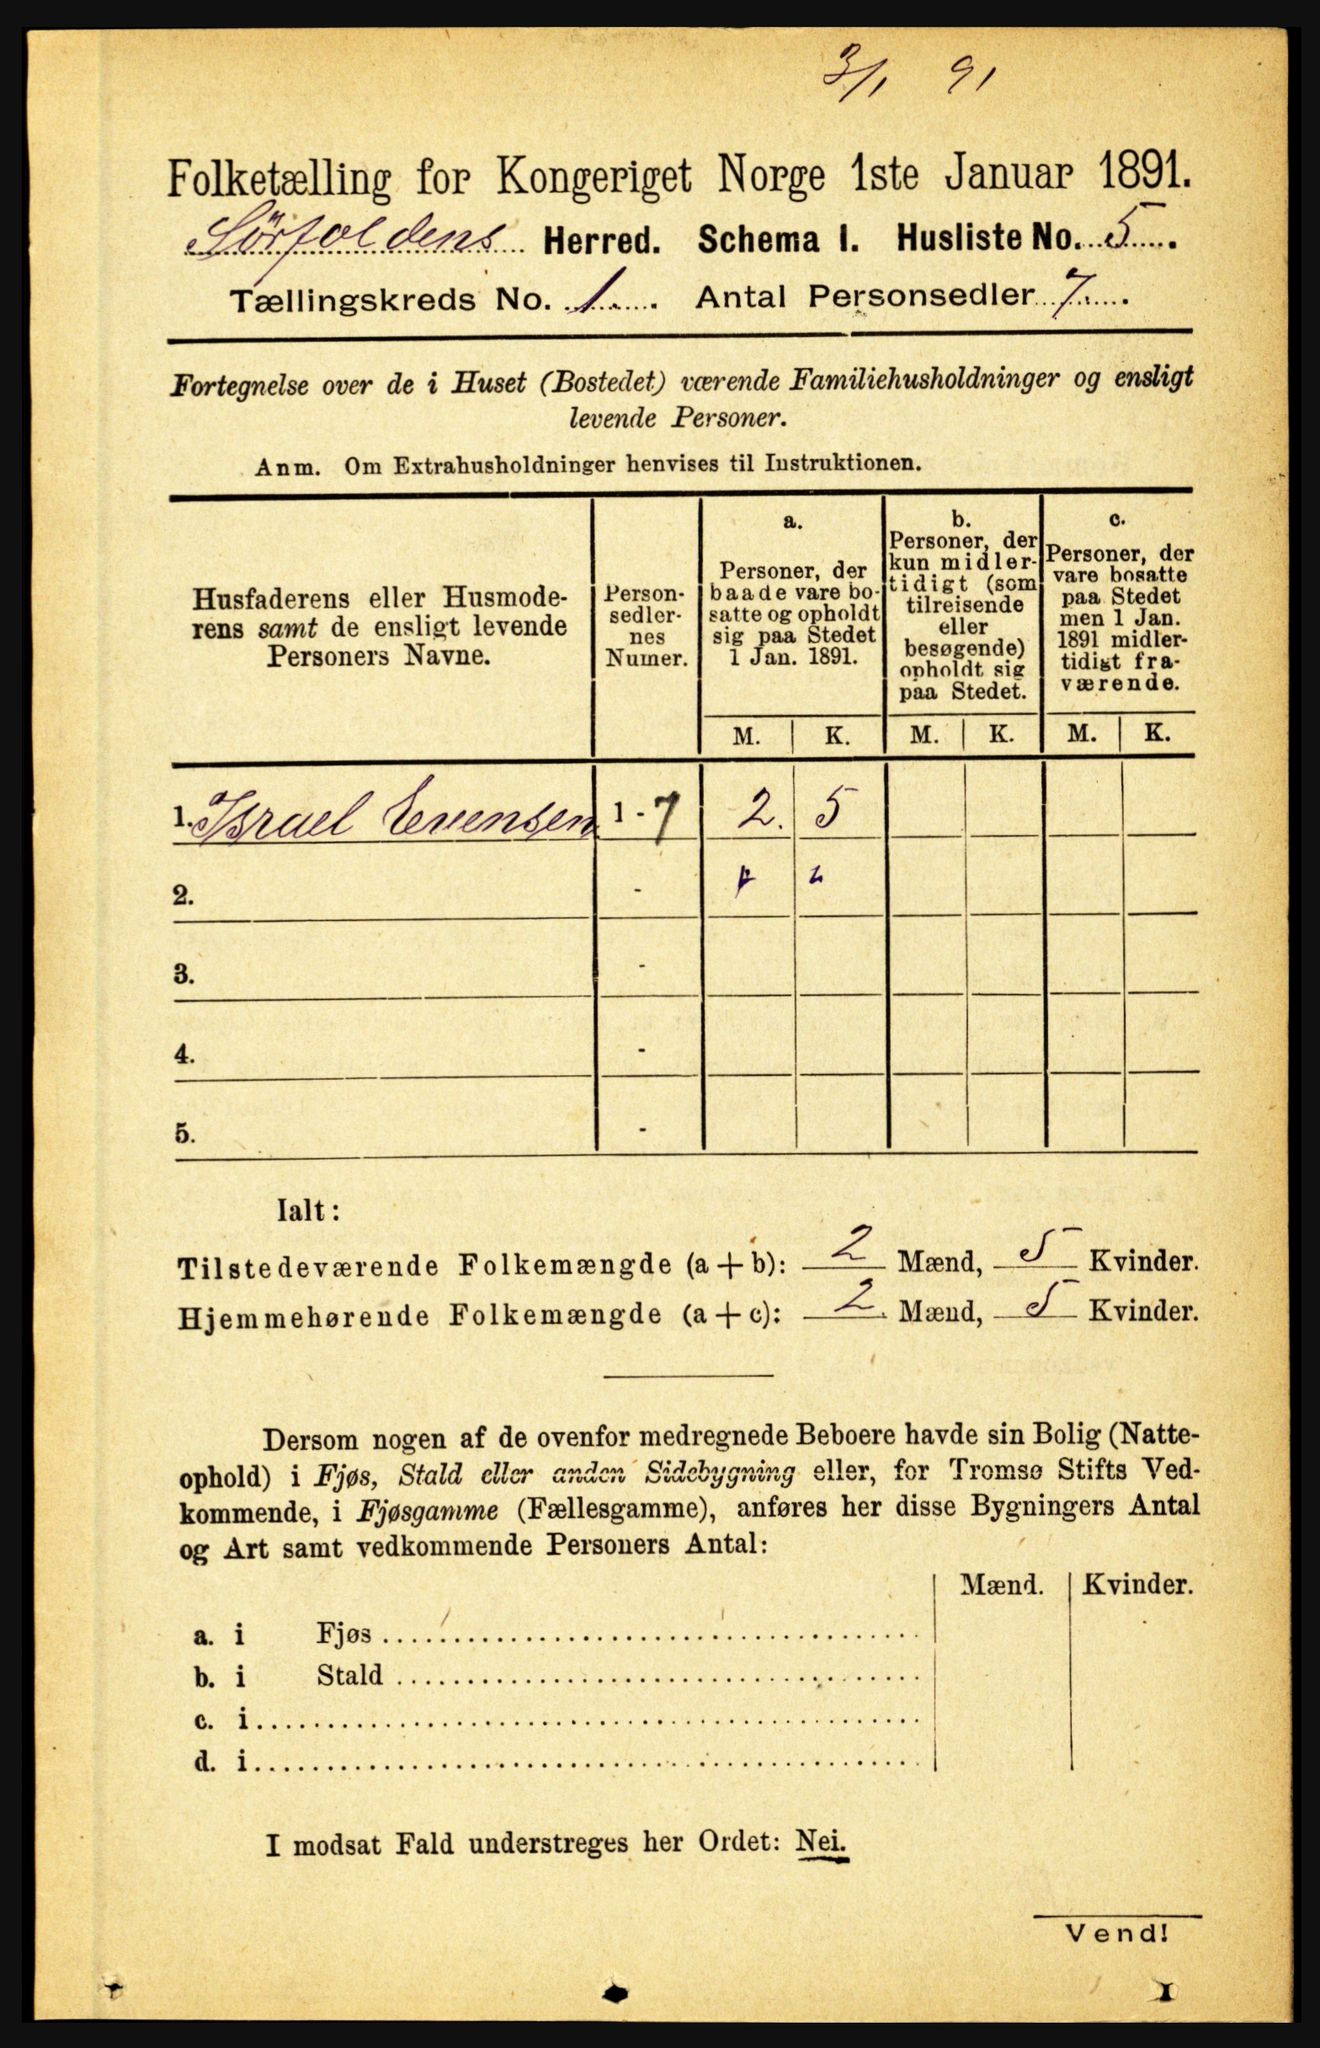 3/1 91
Folketælling for Kongeriget Norge 1ste Januar 1891.
Sørfoldens Herred. Schema I. Husliste No. 5.
Tællingskreds No. 1. Antal Personsedler 7.
Fortegnelse over de i Huset (Bostedet) værende Familiehusholdninger og ensligt
levende Personer.
Anm. Om Extrahusholdninger henvises til Instruktionen.
Husfaderens eller Husmode-
rens samt de ensligt levende
Personers Navne.
Person-
sedler-
nes
Numer.
a.
Personer, der
baade vare bo-
satte og opholdt
sig paa Stedet
1 Jan. 1891.
b.
Personer, der
kun midler-
tidigt (som
tilreisende
eller
besøgende)
opholdt sig
paa Stedet.
c.
Personer, der
vare bosatte
paa Stedet
men 1 Jan.
1891 midler-
tidigt fra-
værende.
M. K. M. K. M. K.
1. Israel Evensen 1 - 7 2. 5
2. -
3. -
4. -
5. -
Ialt:
Tilstedeværende Folkemængde (a + b): 2 Mænd, 5 Kvinder.
Hjemmehørende Folkemængde (a + c): 2 Mænd, 5 Kvinder.
Dersom nogen af de ovenfor medregnede Beboere havde sin Bolig (Natte-
ophold) i Fjøs, Stald eller anden Sidebygning eller, for Tromsø Stifts Ved-
kommende, i Fjøsgamme (Fællesgamme), anføres her disse Bygningers Antal
og Art samt vedkommende Personers Antal:
Mænd. Kvinder.
a. i Fjøs
b. i Stald
c. i
d. i
I modsat Fald understreges her Ordet: Nei.
Vend!